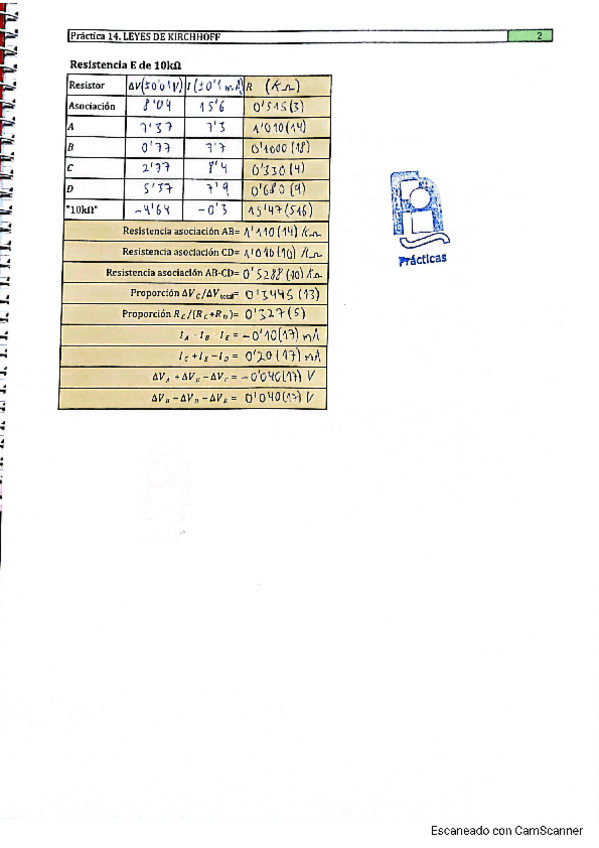 Práctica 14. LEYES DE KIRCHHOFF 2
Resistencia E de 10kΩ
Resistor ΔV(±0'01V) I(±0'1mA) R (KΩ)
Asociación 8'04 15'6 0'515(3)
A 7'37 7'3 1'010(14)
B 0'77 7'7 0'1000(18)
C 2'77 8'4 0'330(4)
D 5'37 7'9 0'680(9)
"10kΩ" -4'64 -0'3 15'47(516)
Resistencia asociación AB= 1'110(14) KΩ
Resistencia asociación CD= 1'010(10) KΩ
Resistencia asociación AB-CD= 0'5288(40) KΩ
Proporción ΔV_C/ΔV_total= 0'3445(13)
Proporción R_C/(R_C+R_D)= 0'327(5)
I_A - I_B I_E = -0'10(17) mA
I_C + I_E - I_D = 0'20(17) mA
ΔV_A + ΔV_E - ΔV_C = -0'040(17) V
ΔV_B - ΔV_D - ΔV_E = 0'040(17) V
Prácticas
Escaneado con CamScanner